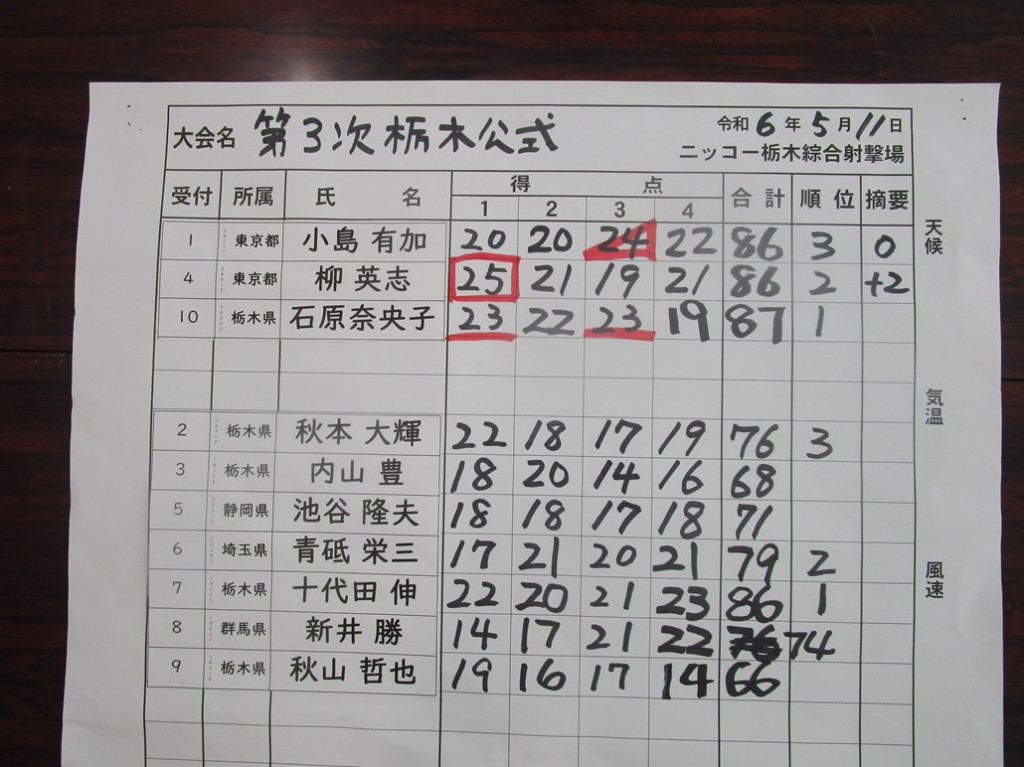 大会名 第3次栃木公式 令和6年5月11日
ニッコー栃木綜合射撃場
受付 所属 氏名 得点 合計 順位 摘要
1 2 3 4
1 東京都 小島 有加 20 20 24 22 86 3 0
4 東京都 柳 英志 25 21 19 21 86 2 +2
10 栃木県 石原奈央子 23 22 23 19 87 1
2 栃木県 秋本 大輝 22 18 17 19 76 3
3 栃木県 内山 豊 18 20 14 16 68
5 静岡県 池谷 隆夫 18 18 17 18 71
6 埼玉県 青砥 栄三 17 21 20 21 79 2
7 栃木県 十代田 伸 22 20 21 23 86 1
8 群馬県 新井 勝 14 17 21 22 74
9 栃木県 秋山 哲也 19 16 17 14 66
天候
気温
風速